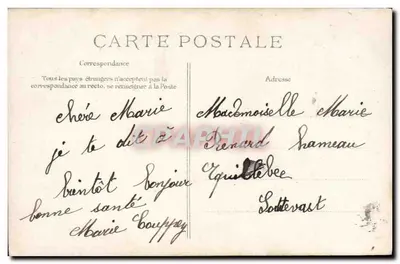 CARTE POSTALE
Correspondance
Tous les pays étrangers n'acceptent pas la
correspondance au recto, se renseigner à la Poste
chére Marie
je te dit à
bientôt bonjour
bonne santé
Marie Couppey
Adresse
Mademoiselle Marie
Renard hameau
Sottevast